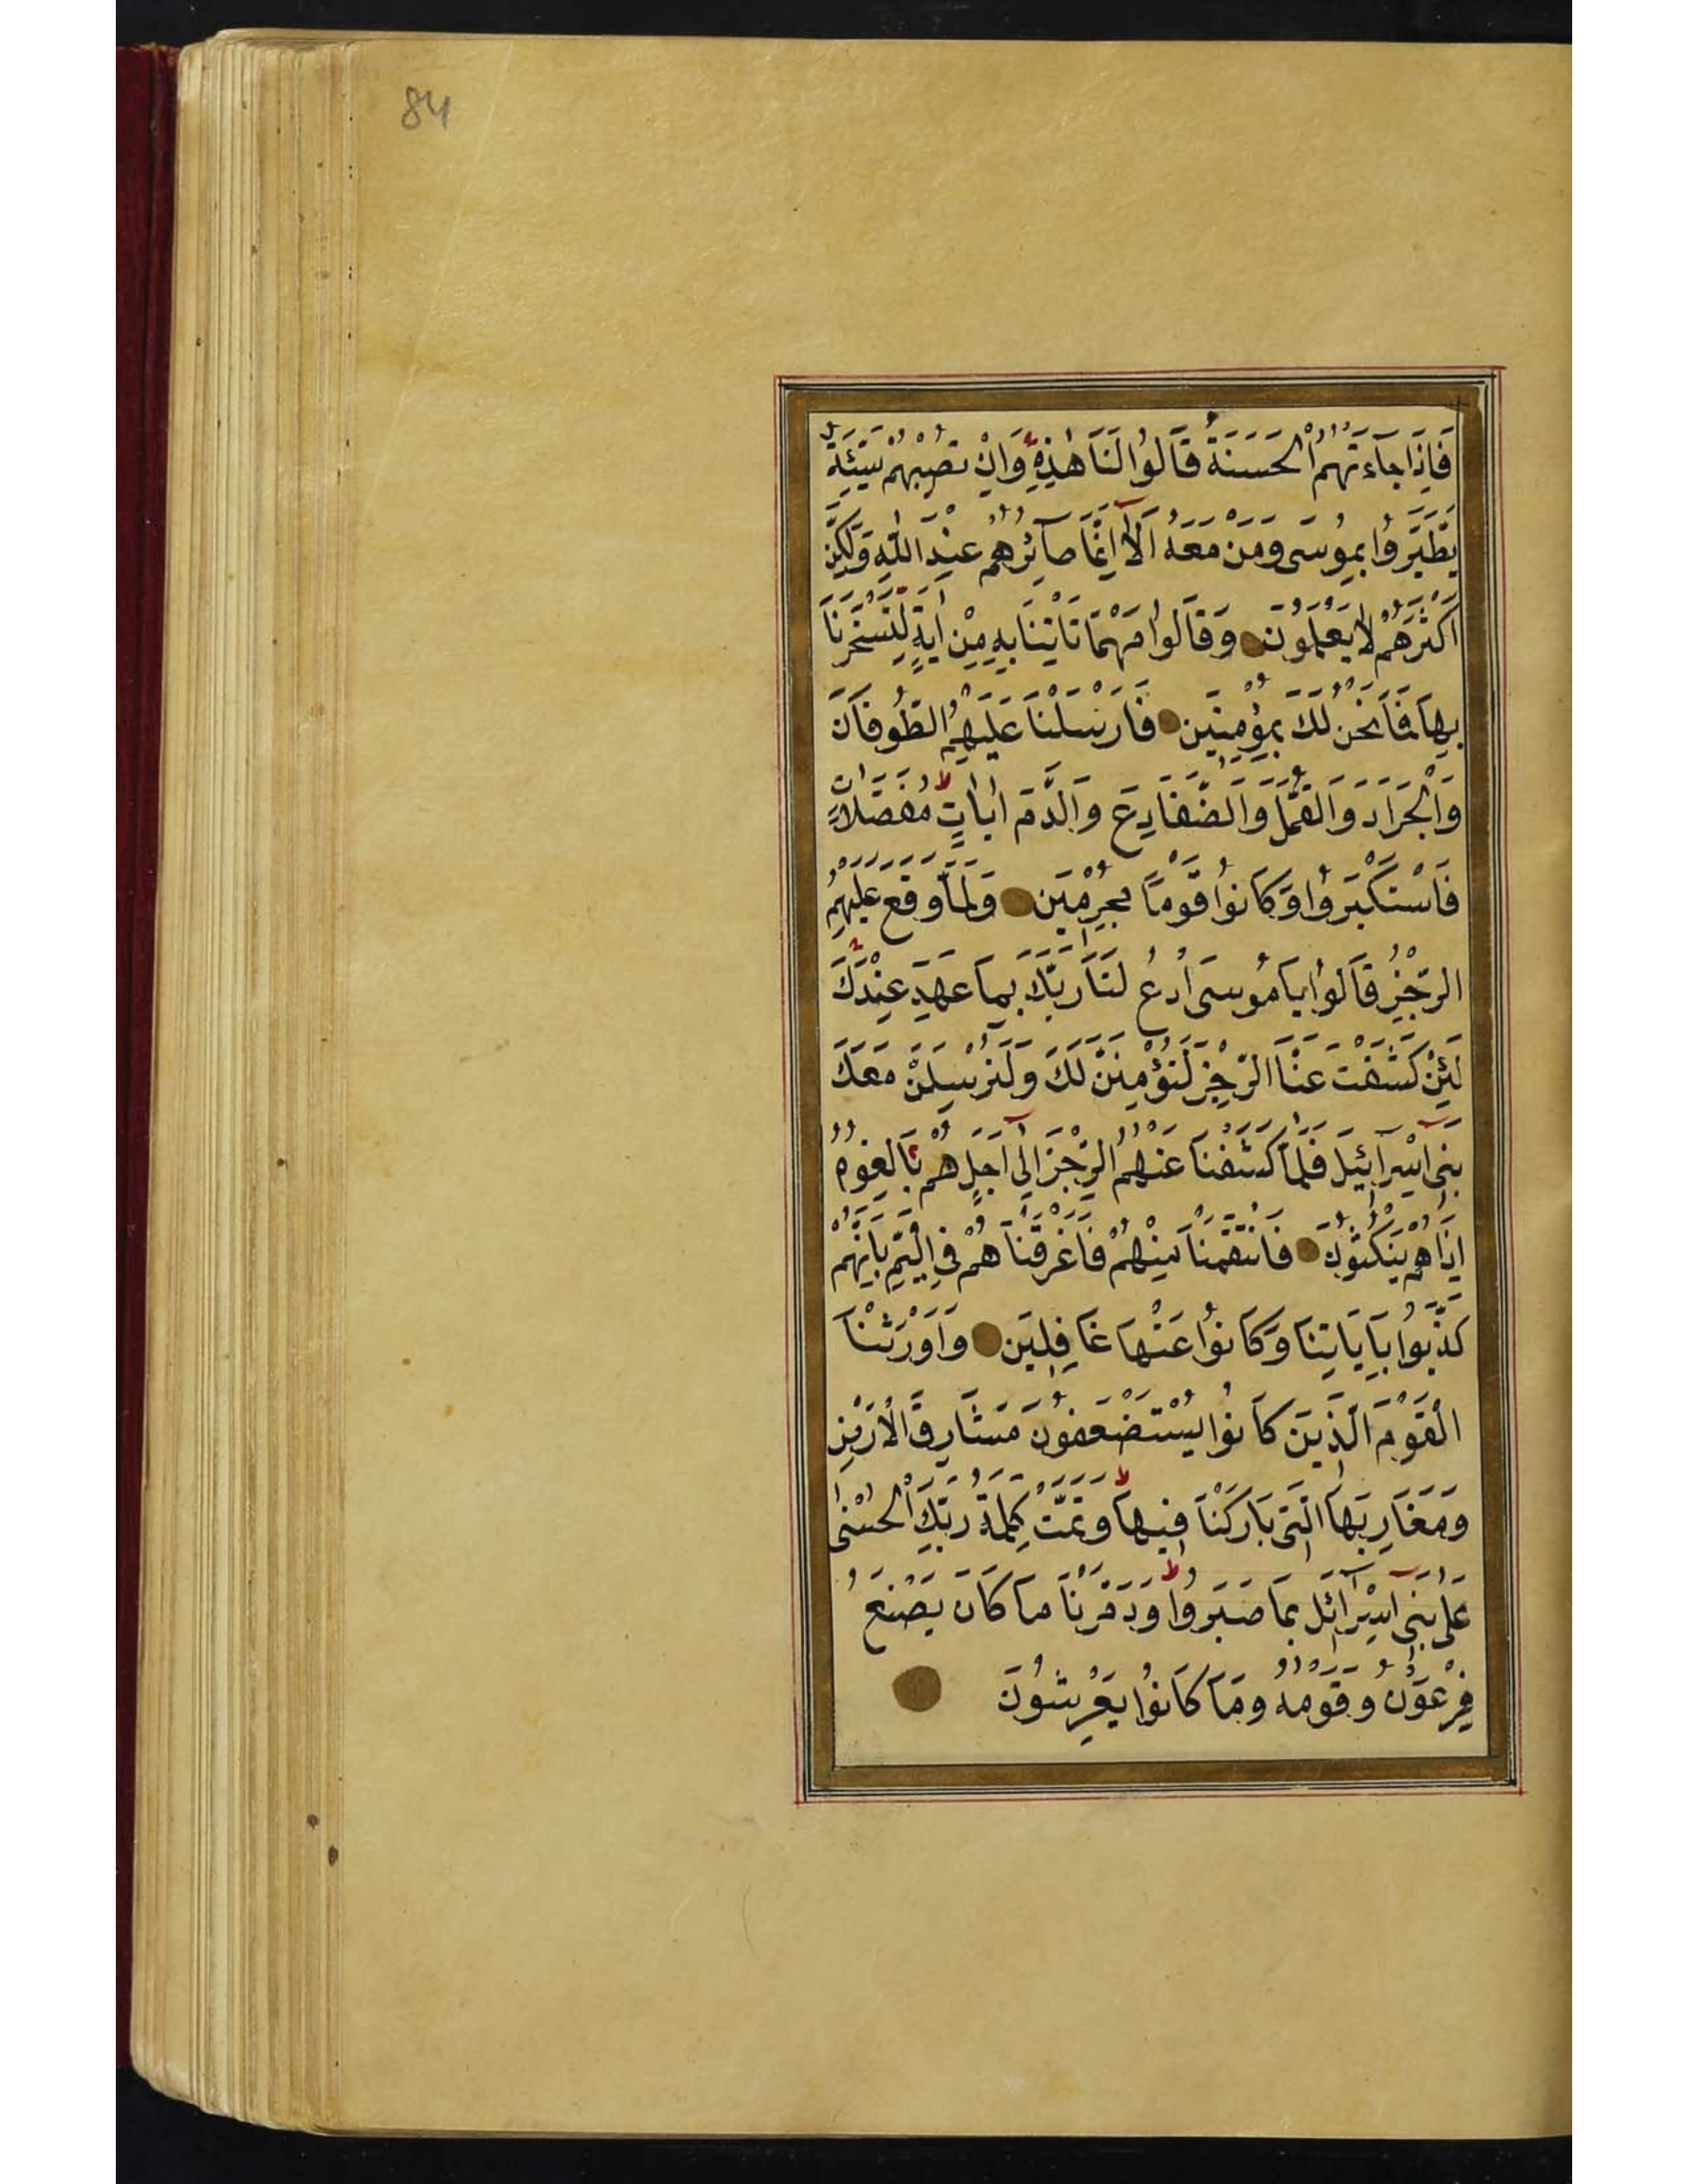 84
فَاِذَا جَآءَتْهُمُ الْحَسَنَةُ قَالُوا لَنَا هٰذِهِ وَاِنْ تُصِبْهُمْ سَيِّئَةٌ
يَطَّيَّرُوا بِمُوسٰى وَمَنْ مَعَهُ اَلَآ اِنَّمَا صَآئِرُهُمْ عِنْدَ اللّٰهِ وَلٰكِنَّ
اَكْثَرَهُمْ لَا يَعْلَمُونَ وَقَالُوا مَهْمَا تَاْتِنَا بِهِ مِنْ اٰيَةٍ لِتَسْحَرَنَا
بِهَا فَمَا نَحْنُ لَكَ بِمُؤْمِنِينَ فَاَرْسَلْنَا عَلَيْهِمُ الطُّوفَانَ
وَالْجَرَادَ وَالْقُمَّلَ وَالضَّفَادِعَ وَالدَّمَ اٰيَاتٍ مُفَصَّلَاتٍ
فَاسْتَكْبَرُوا وَكَانُوا قَوْمًا مُجْرِمِينَ وَلَمَّا وَقَعَ عَلَيْهِمُ
الرِّجْزُ قَالُوا يَا مُوسَى ادْعُ لَنَا رَبَّكَ بِمَا عَهِدَ عِنْدَكَ
لَئِنْ كَشَفْتَ عَنَّا الرِّجْزَ لَنُؤْمِنَنَّ لَكَ وَلَنُرْسِلَنَّ مَعَكَ
بَنِى اِسْرَآئِيلَ فَلَمَّا كَشَفْنَا عَنْهُمُ الرِّجْزَ اِلٰٓى اَجَلٍ هُمْ بَالِغُوهُ
اِذَا هُمْ يَنْكُثُونَ فَانْتَقَمْنَا مِنْهُمْ فَاَغْرَقْنَاهُمْ فِى الْيَمِّ بِاَنَّهُمْ
كَذَّبُوا بِاٰيَاتِنَا وَكَانُوا عَنْهَا غَافِلِينَ وَاَوْرَثْنَا
الْقَوْمَ الَّذِينَ كَانُوا يُسْتَضْعَفُونَ مَشَارِقَ الْاَرْضِ
وَمَغَارِبَهَا الَّتِى بَارَكْنَا فِيهَا وَتَمَّتْ كَلِمَةُ رَبِّكَ الْحُسْنٰى
عَلٰى بَنِٓى اِسْرَآئِلَ بِمَا صَبَرُوا وَدَمَّرْنَا مَا كَانَ يَصْنَعُ
فِرْعَوْنُ وَقَوْمُهُ وَمَا كَانُوا يَعْرِشُونَ